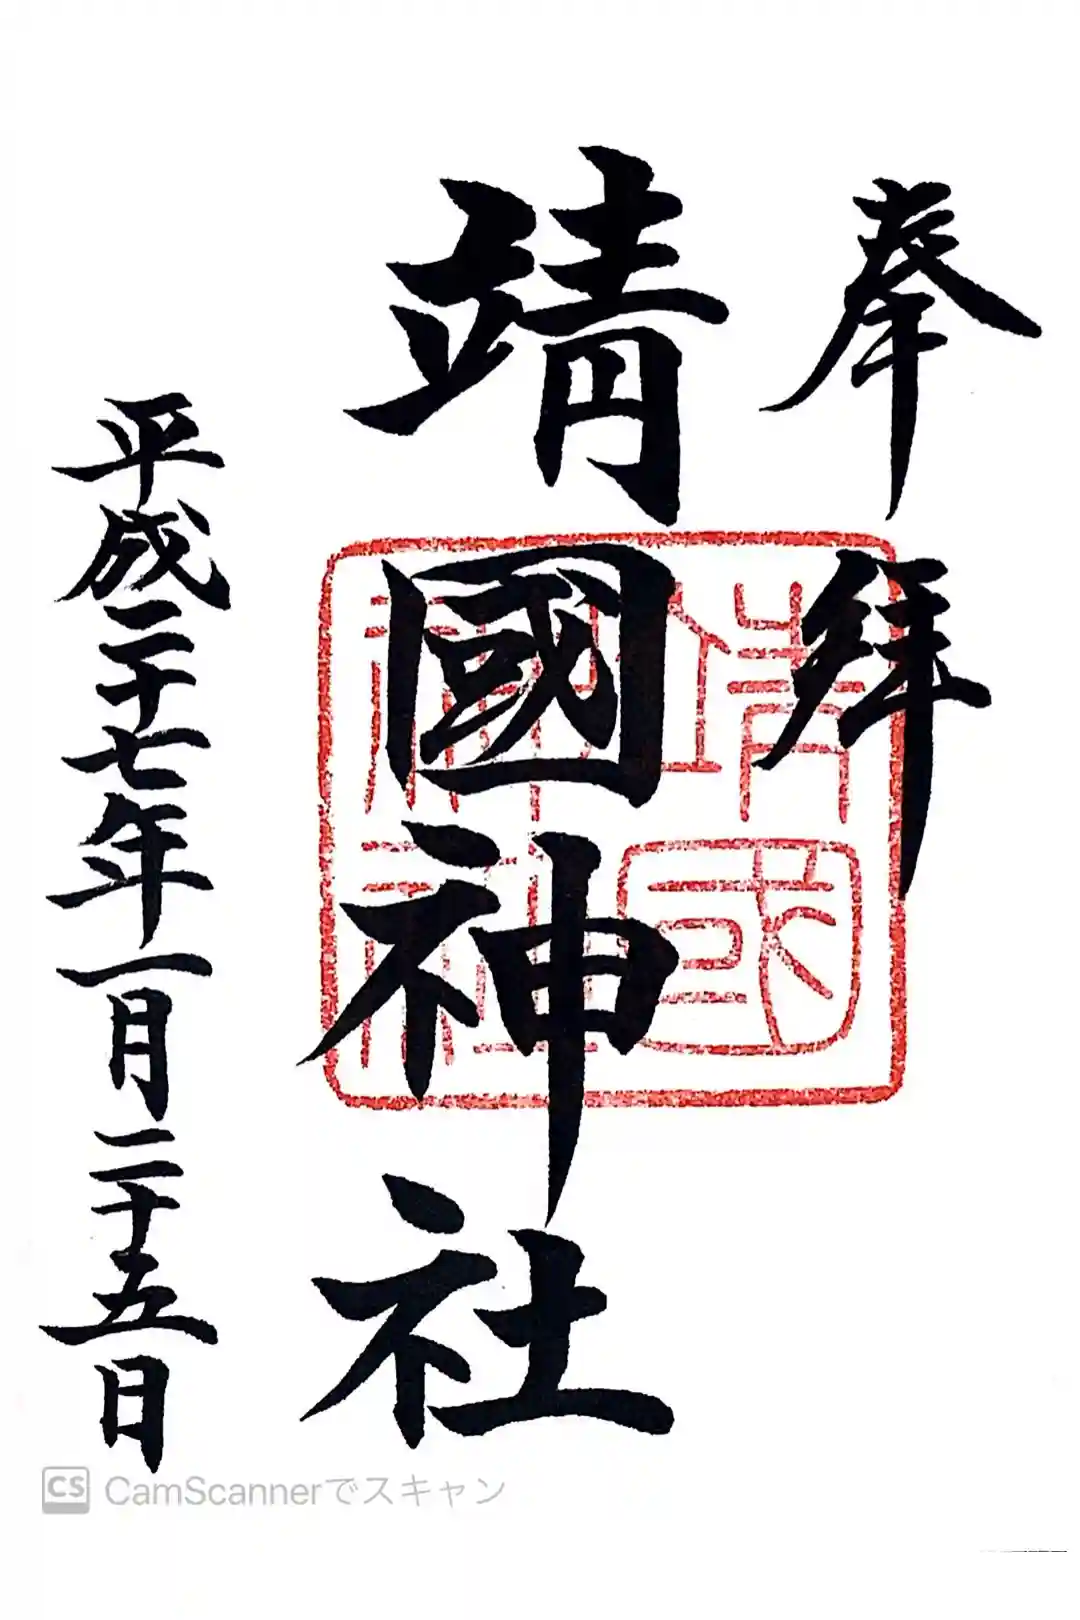 奉拝
靖國神社
靖国神社
平成二十七年一月二十五日
CS CamScannerでスキャン